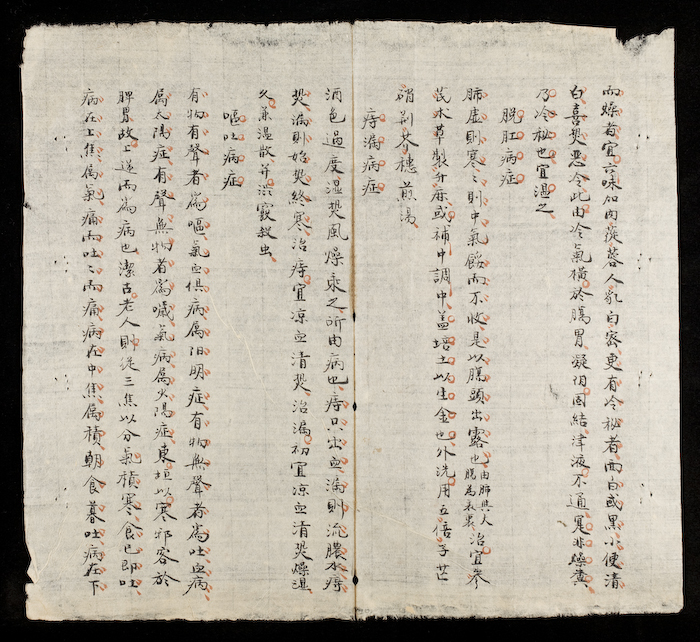 而燥者宜六味加肉蓯蓉人乳白密更有冷秘者面白或黑小便清
白喜热惡冷此由冷氣橫於腸胃凝陰固結津液不通寔非燥糞
乃冷秘也宜温之
脫肛病症
肺虛則寒〻則中氣餒而不收是以腸頭出露也由肺與大腸為表裏治宜參
芪术草製升麻或補中調中盖培土以生金也外洗用五倍子芒
硝荆芥穗煎湯
痔漏病症
酒色過度湿热風燥乘之所由病也痔只出血漏則流膿水痔
热漏則始热終寒治痔宜凉血清热治漏初宜凉血清热燥湿
久兼温散并澁竅殺虫
嘔吐病症
有物有聲者為嘔氣血俱病属阳明症有物無聲者為吐血病
属太陽症有聲無物者為噦氣病属少陽症東垣以寒邪客於
脾胃故上逆而為病也潔古老人則從三焦以分氣積寒食已即吐
病在上焦属氣痛而吐〻而痛病在中焦属積朝食暮吐病在下